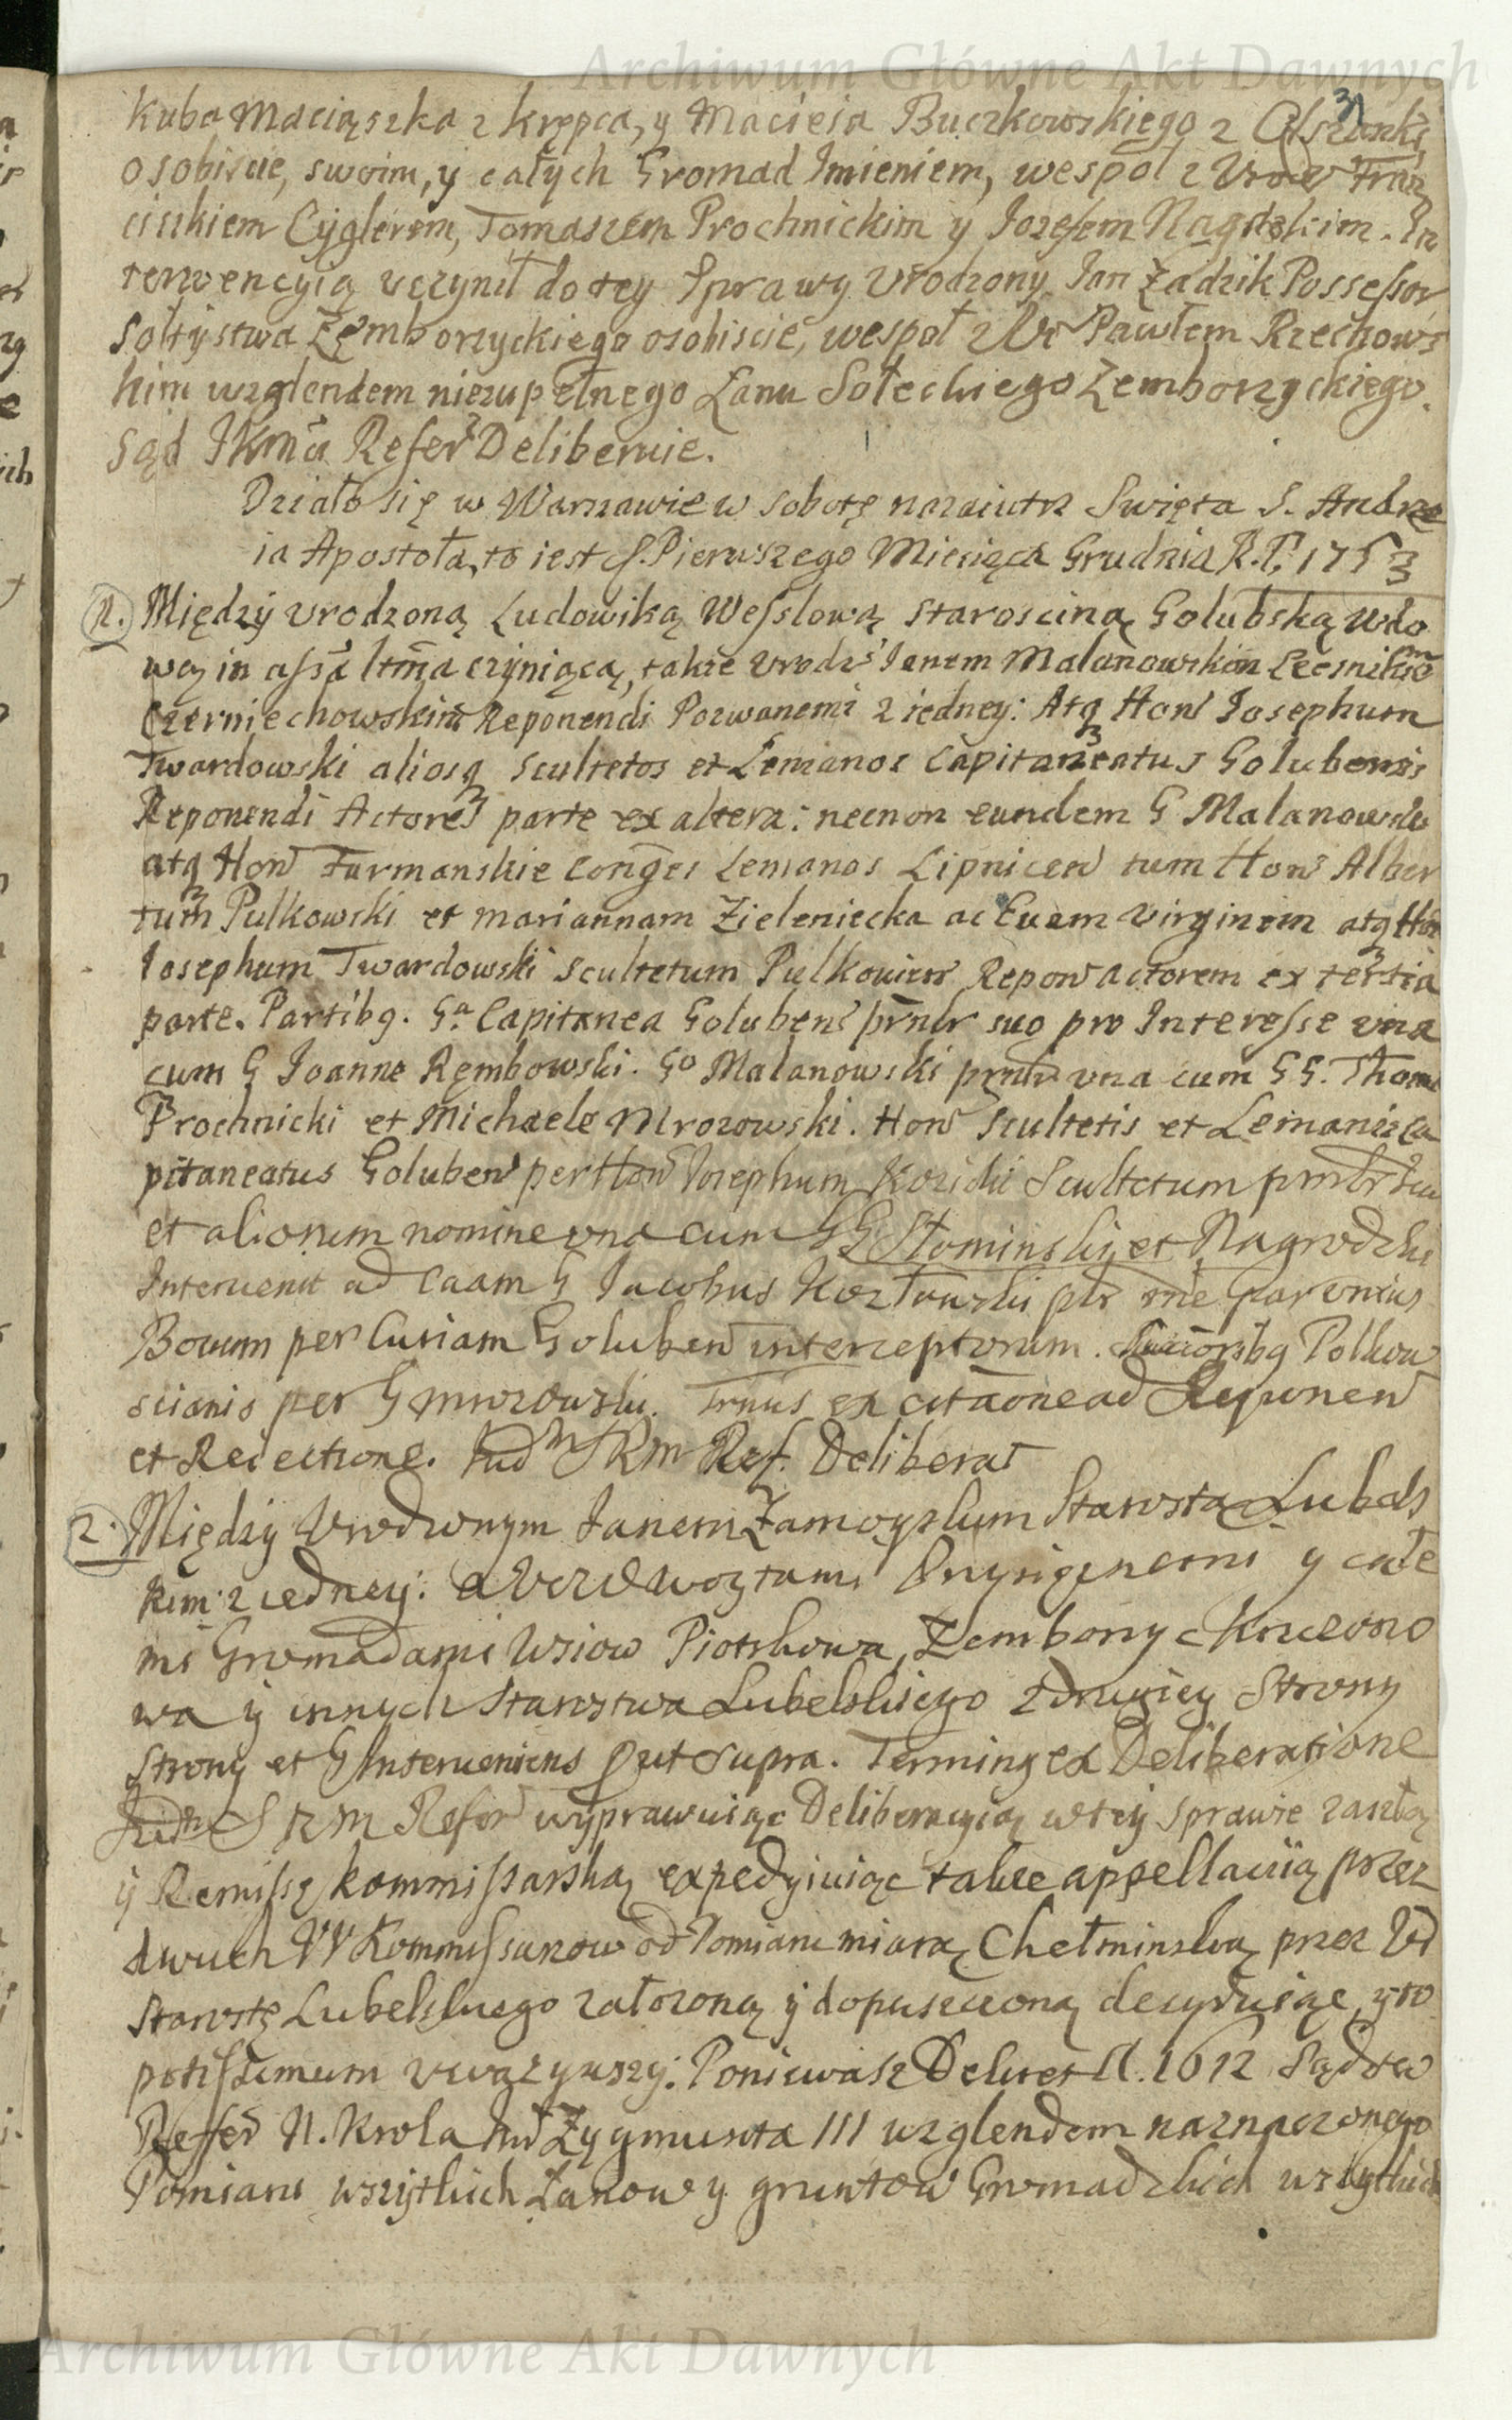 Archiwum Główne Akt Dawnych
31
Kuba Maciąszka z Krępca, y Macieia Buczkowskiego z Olszanki,
osobiscie, swoim, y całych Gromad Imieniem, wespoł z Fran
ciszkiem Cyglerem, Tomaszem Prochnickim y Iozefem Nagrodzkim. In
terwencyią uczynił do tey Sprawy Urodzony Ian Zadzik Possessor
Sołtystwa Zemborzyckiego osobiscie, wespoł z Ur Pawłem Rzechows
kim wzglendem niezupełnego Łanu Sołeckiego Zemborzyckiego.
Sąd JKMći Refer Deliberuie.
Działo się w Warszawie w Sobotę nazaiutrz Swięta S. Andrze
ia Apostoła, to iest d. Pierwszego Miesiąca Grudnia R.P. 1753
1. Między Urodzoną Ludowiką Wesslową Starosciną Golubską Wdo
wą in assa ltma czyniącą, także Urodz Ianem Malanowskim Łecsnikiem
Czerniechowskim Reponendi Pozwanemi z iedney: Atq Hon Iosephum
Twardowski aliosq Scultetos et Lemanos Capitaneatus Golubensis
Reponendi Actores parte ex altera: necnon eundem G Malanowski
atq Hon Furmanskie Conges Lemanos Lipnicen tum Hon Alber
tum Pulkowski et Mariannam Zieleniecka ac Evam Virginem atq Hon
Iosephum Twardowski Scultetum Pulkovien Repon actorem ex tertia
parte. Partibq. Ga Capitanea Goluben prntr suo pro Interesse una
cum G Ioanne Rembowski. Go Malanowski prntr una cum GG. Thoma
Prochnicki et Michaele Mrozowski. Hon Scultetis et Lemanis Ca
pitaneatus Goluben per Hon Iosephum Scultetum prntr suo
et aliorum nomine una cum GG Słominski et Nagrodzki
Intervenit ad Caam G Iacobus Kozłowski
Boum per Curiam Goluben interceptorum. Polkow
scianis per G Mrozowski. Trnus ex citaone ad Reponen
et Reiectione. Iud SRM Ref. Deliberat
2. Między Urodzonym Ianem Zamoyskim Starostą Lubels
kim z iedney: a Woytami Przysięznemi y całe
mi Gromadami Wsiow Piotrkowa, Zemborzyc Krzczono
wa y innych Starostwa Lubelskiego z drugiey Strony
Strony et G Interveniens ut supra. Terminq ex Deliberatione
Iudm SRM Refer wyprawuiąc Deliberacyią w tey Sprawie zaszłą
y Remissę Kommissarską expedyiuiąc także appellacyią przez
dwuch VV Kommissarzow od Pomiaru miarą Chełminską przez Ur
Starostę Lubelskiego załozoną y dopuszczoną decyduiąc, y to
potissimum uwazywszy. Poniewasz Dekret A. 1612 Sądow
Reffer N. Krola Imć Zygmunta III wzglendem naznaczonego
Pomiaru wszytkich Łanow y gruntow Gromadzkich wszytkich
Archiwum Główne Akt Dawnych